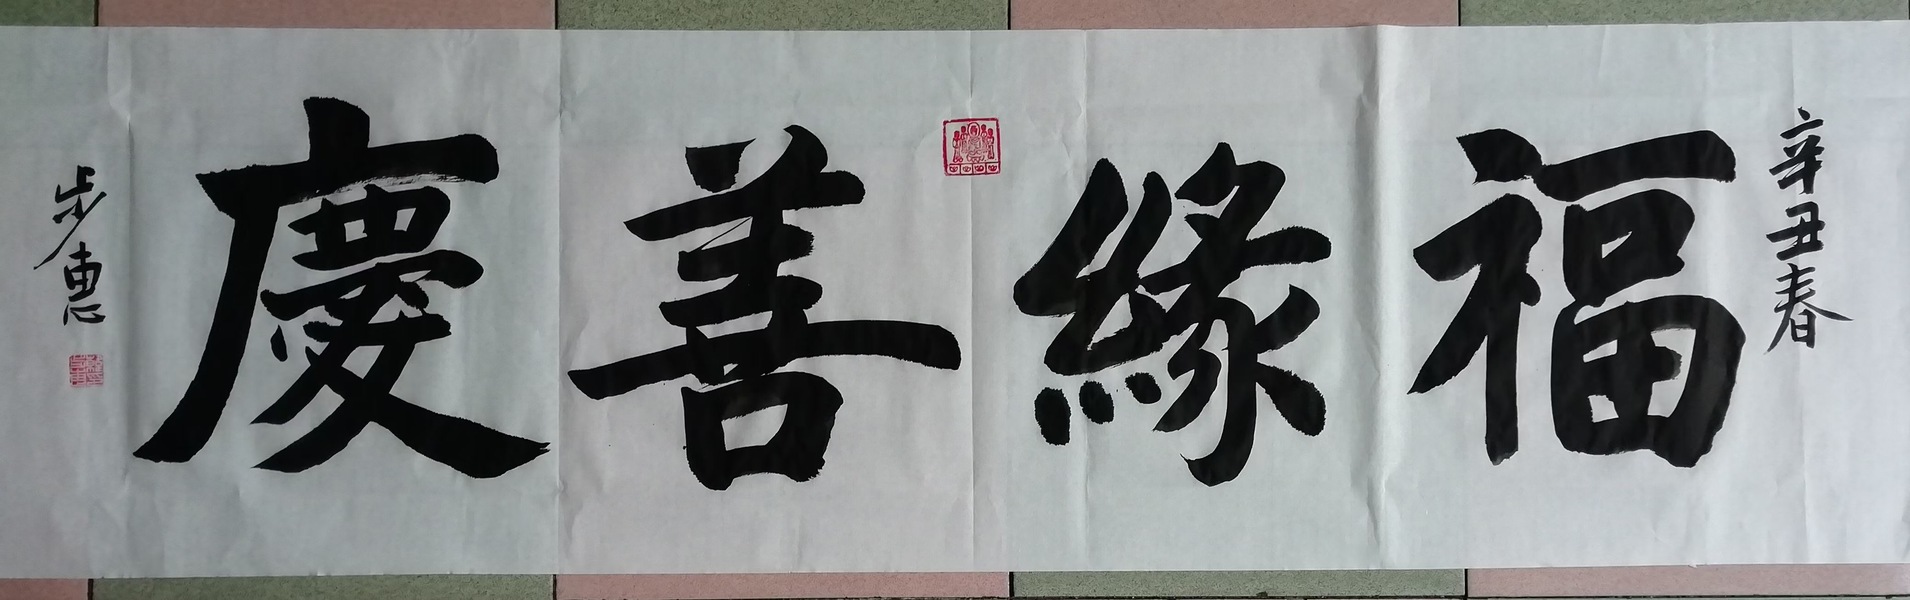 辛丑春
福緣善慶
步惠